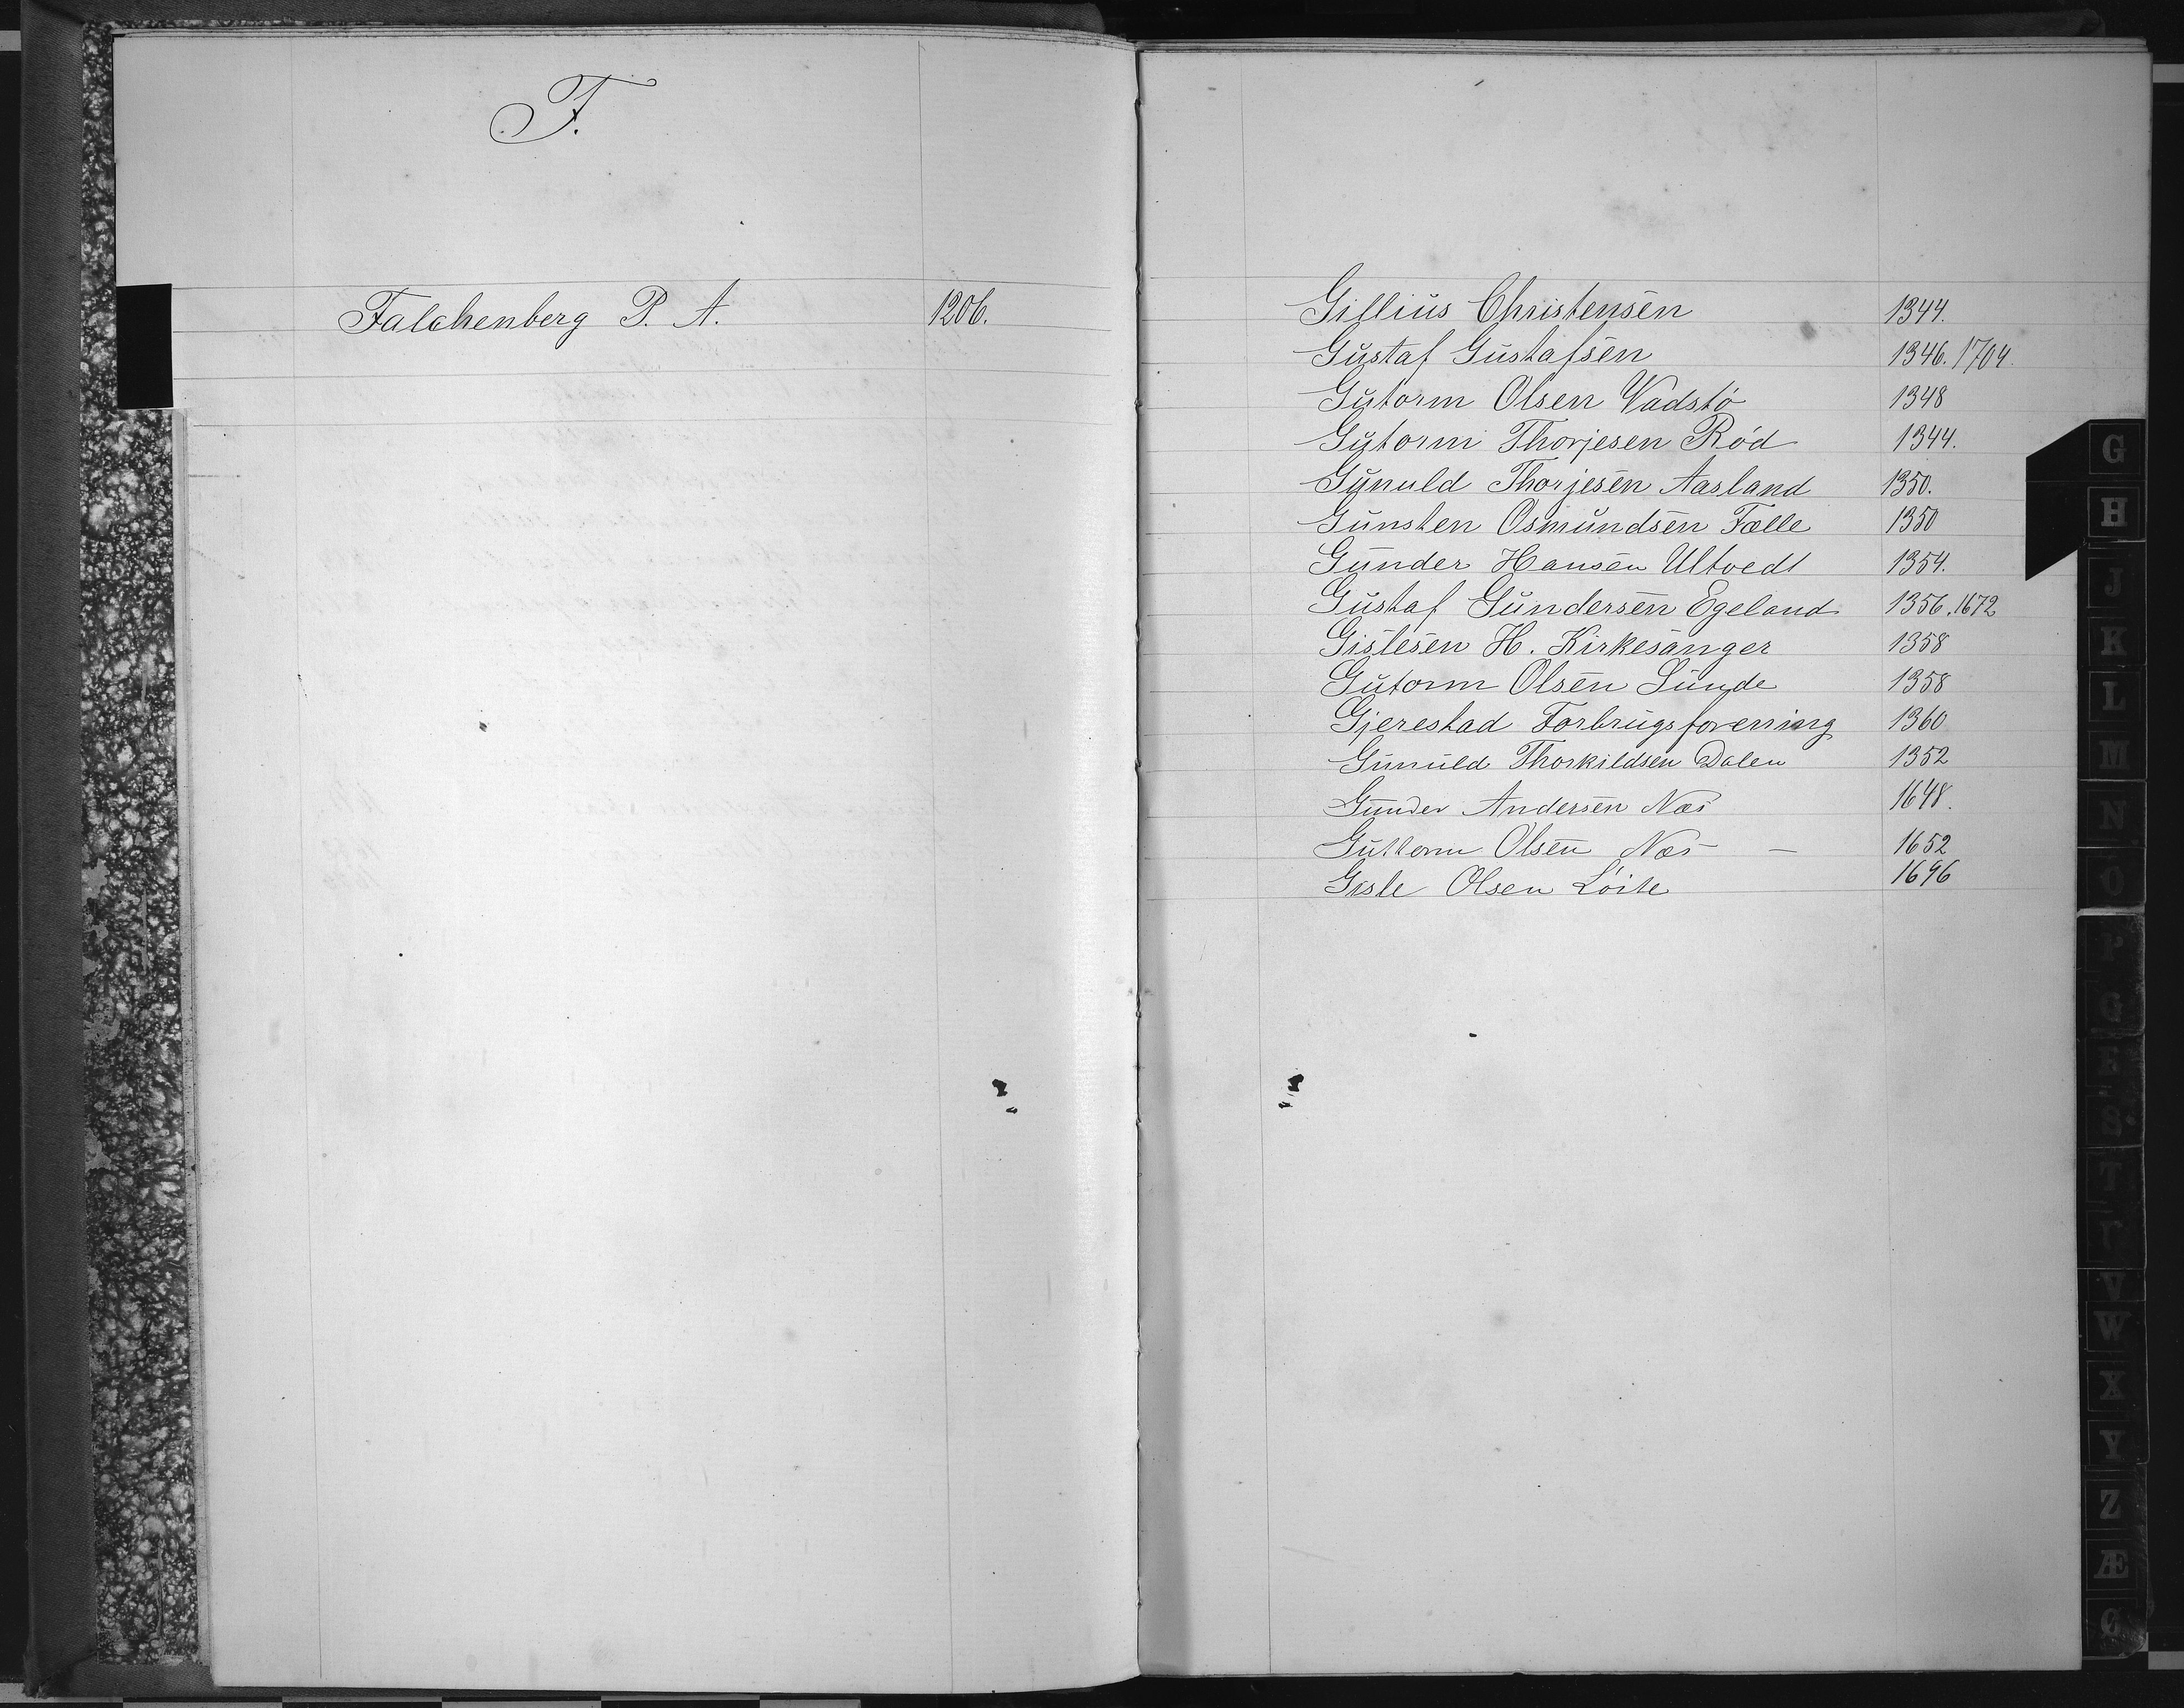 F.
Falchenberg P. A. 1206.
Gillius Christensen 1344.
Gustaf Gustafsen 1346. 1704.
Gutorm Olsen Vadstö 1348
Gutorm Thorjesen Röd 1344.
Gunuld Thorjesen Aasland 1350.
Gunsten Osmundsen Fælle 1350
Gunder Hansen Ultvedt 1354.
Gustaf Gundersen Egeland 1356. 1672
Gislesen H. Kirkesanger 1358
Gutorm Olsen Lunde 1358
Gjerestad Forbrugsforening 1360
Gunuld Thorkildsen Dalen 1352
Gunder Andersen Næs 1648.
Guttorm Olsen Næs — 1652
Gisle Olsen Löite 1696
G
H
J
K
L
M
N
O
P
Q
R
S
T
V
W
X
Y
Z
Æ
Ø